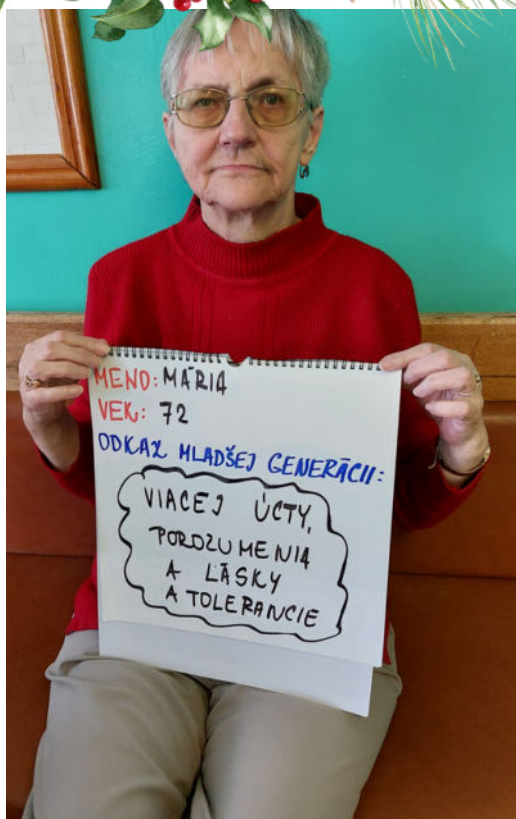 MENO: MÁRIA
VEK: 72
ODKAZ MLADŠEJ GENERÁCII:
VIACEJ ÚCTY,
POROZUMENIA
A LÁSKY
A TOLERANCIE